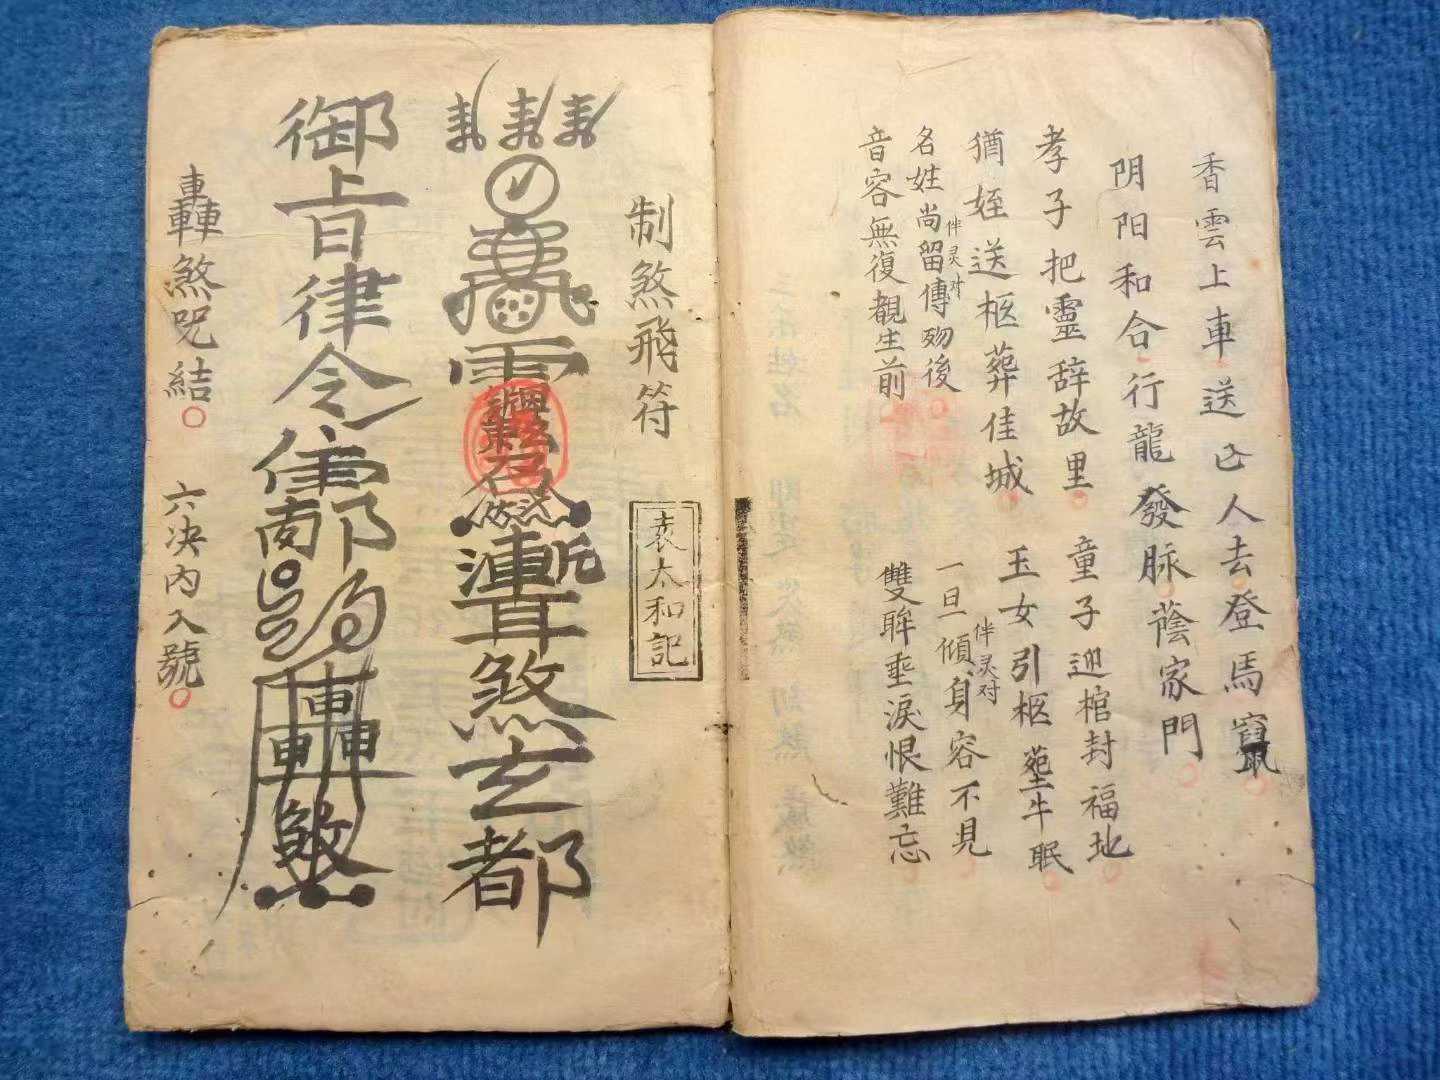 香雲上車送亡人去登馬
阴阳和合行龍發脉蔭家門
孝子把靈辞故里 童子迎棺封福地
猶姪送柩葬佳城 玉女引柩塟牛眠
伴灵对
名姓尚留傳歿後 一旦傾身容不見
伴灵对
音容無復觀生前 雙眸垂淚恨難忘
制煞飛符
袁太和記
煞玄都
御旨律令
煞
轟煞咒結 六决内入號